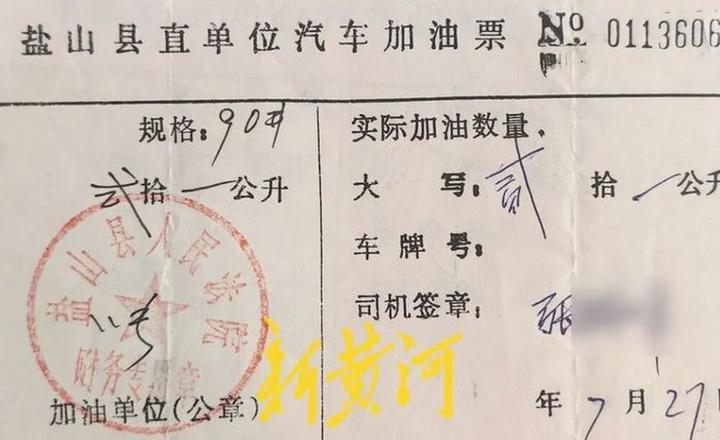 盐山县直单位汽车加油票 No 0113606
规格：90#
贰拾一公升
盐山县人民法院
财务专用章
加油单位(公章)
实际加油数量、
大 写：贰拾一公升
车牌号：
司机签章：张
年7月27日
新黄河